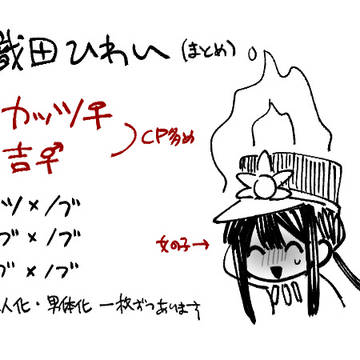 織田ひわい (まとめ)
カッツ♀
吉♂
CP多め
ツ×ノブ
ブ×ノブ
ブ×ノブ
女の子→
人化・男体化 一枚ずつあります